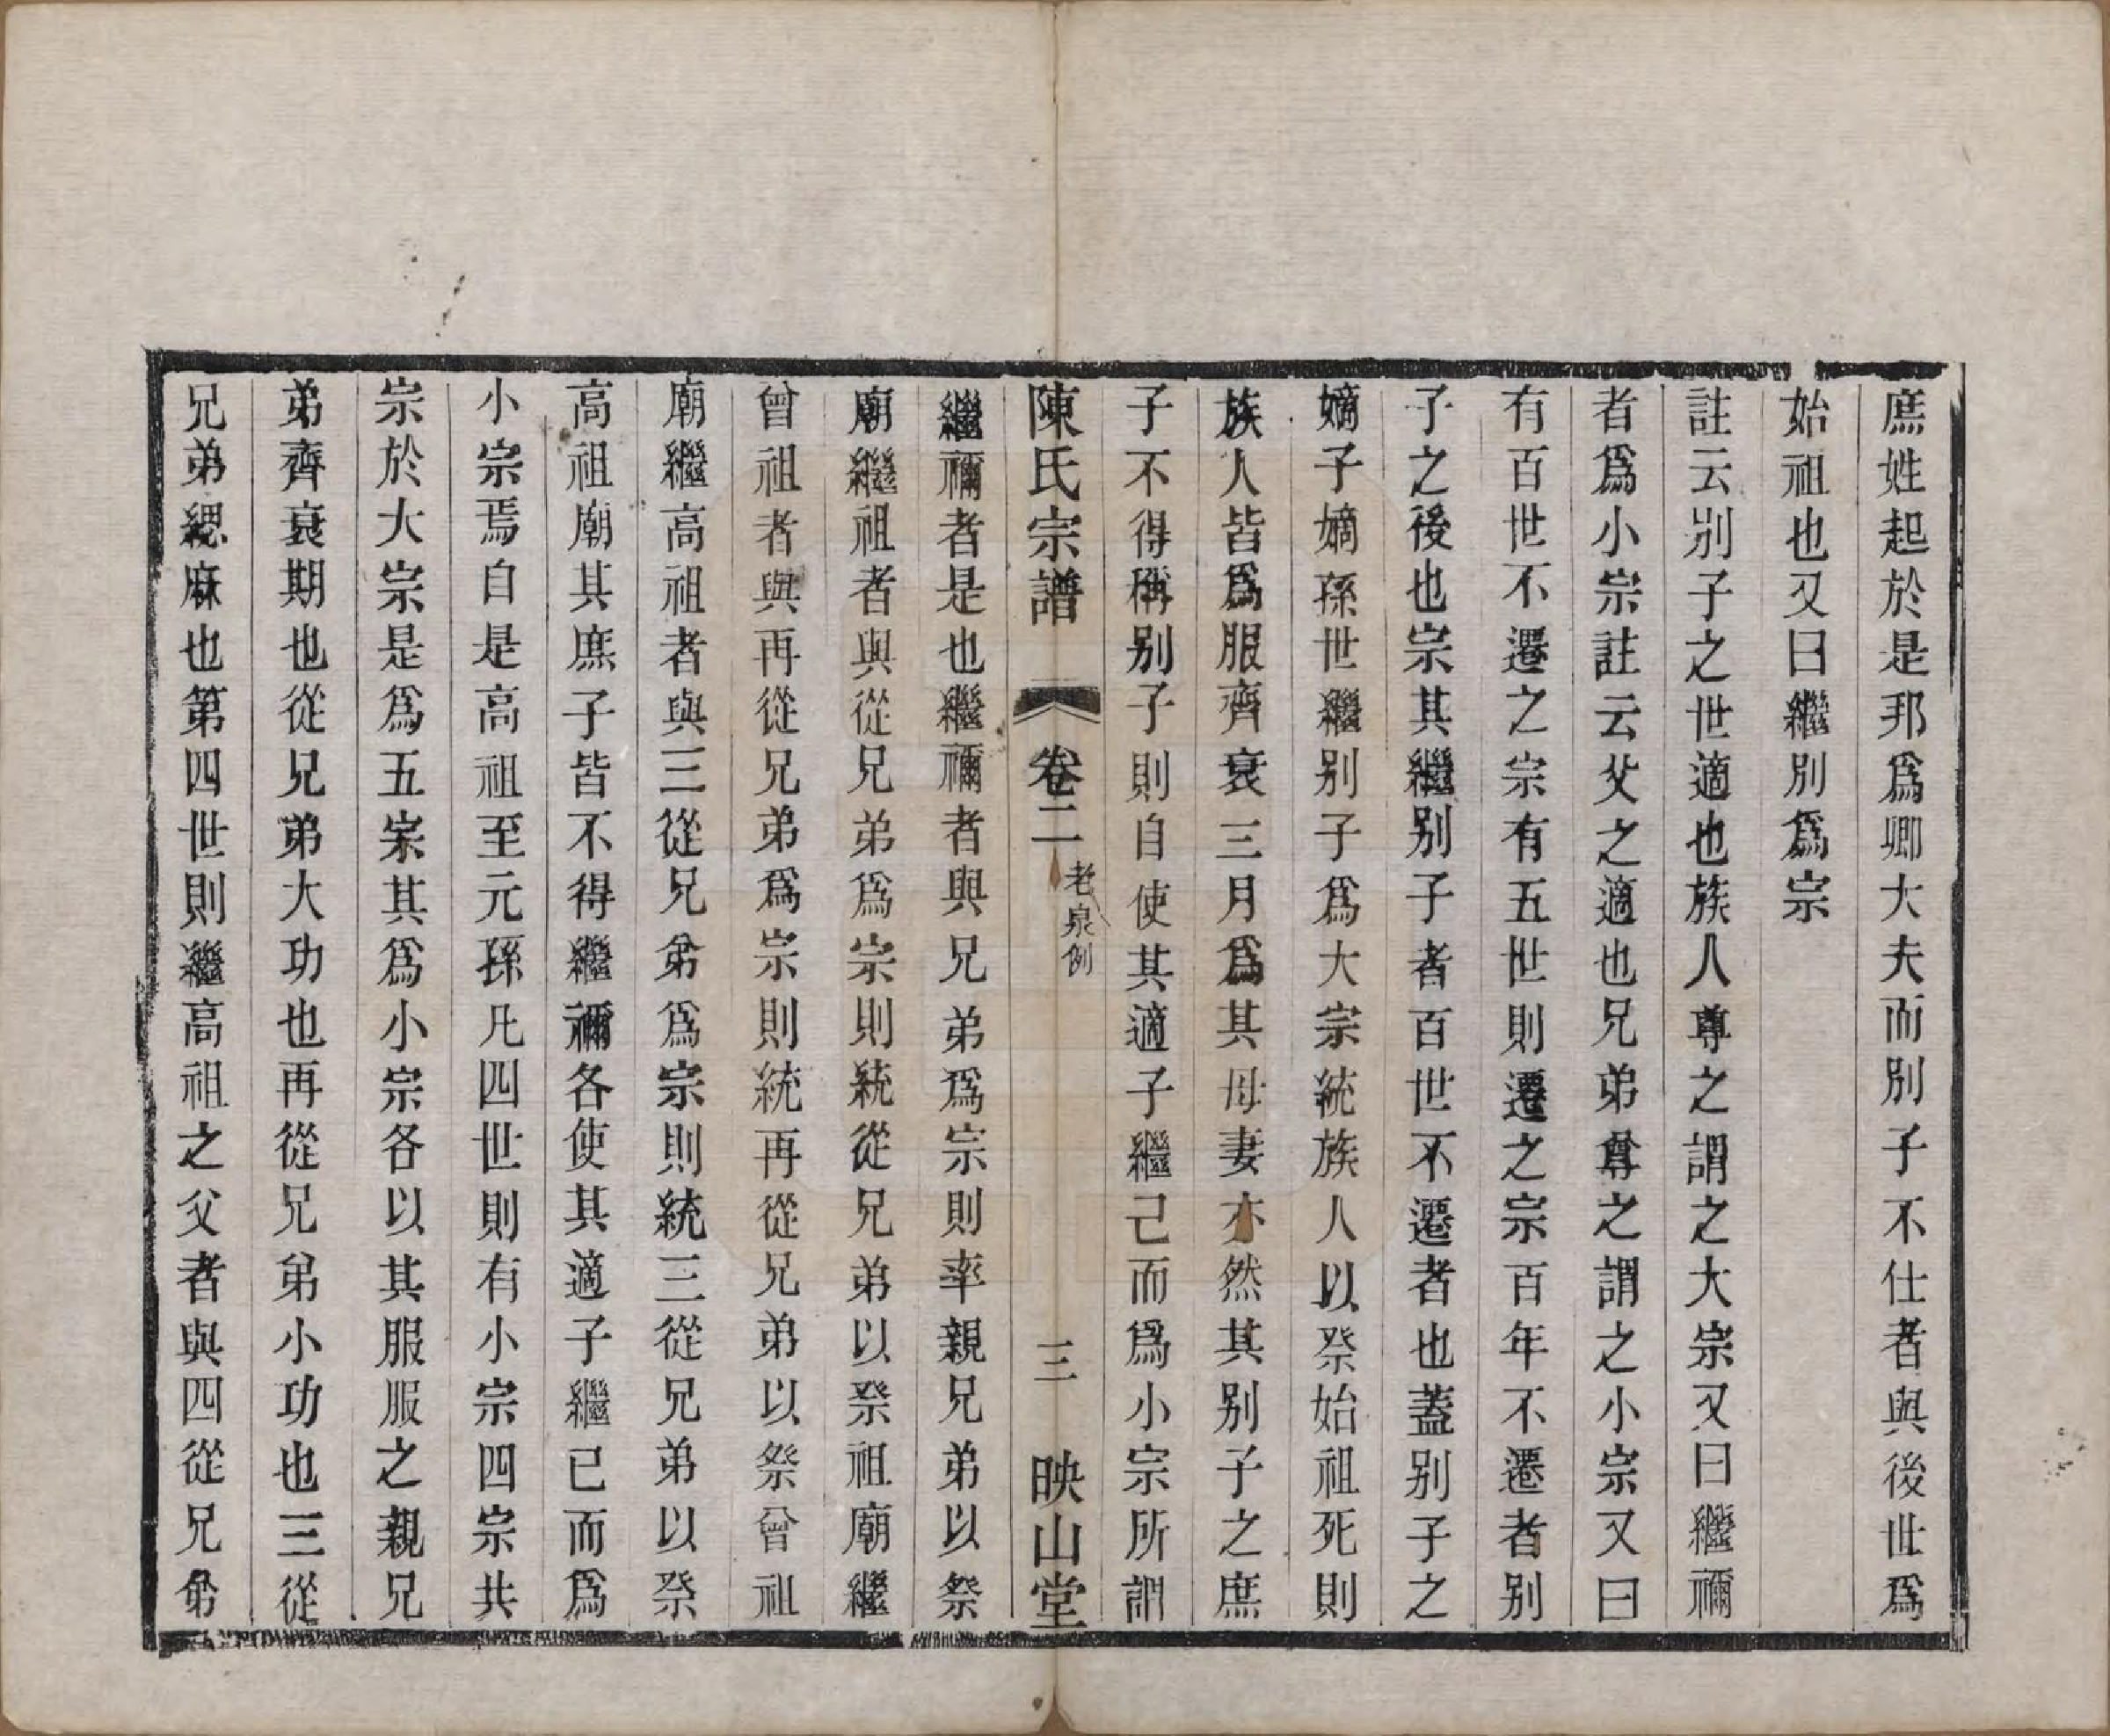 庶姓起於是邦爲卿大夫而別子不仕者與後世爲
始祖也又曰繼別爲宗
註云別子之世適也族人尊之謂之大宗又曰繼禰
者爲小宗註云父之適也兄弟尊之謂之小宗又曰
有百世不遷之宗有五世則遷之宗百年不遷者别
子之後也宗其繼别子者百世不遷者也蓋别子之
嫡子嫡孫世繼别子爲大宗統族人以祭始祖死則
族人皆爲服齊衰三月爲其母妻亦然其别子之庶
子不得稱别子則自使其適子繼己而爲小宗所謂
陳氏宗譜 卷二 老泉例 三 映山堂
繼禰者是也繼禰者與兄弟爲宗則率親兄弟以祭
廟繼祖者與從兄弟爲宗則統從兄弟以祭祖廟繼
曾祖者與再從兄弟爲宗則統再從兄弟以祭曾祖
廟繼高祖者與三從兄弟爲宗則統三從兄弟以祭
高祖廟其庶子皆不得繼禰各使其適子繼已而爲
小宗焉自是高祖至元孫凡四世則有小宗四宗共
宗於大宗是爲五宗其爲小宗各以其服服之親兄
弟齊衰期也從兄弟大功也再從兄弟小功也三從
兄弟緦麻也第四世則繼高祖之父者與四從兄弟